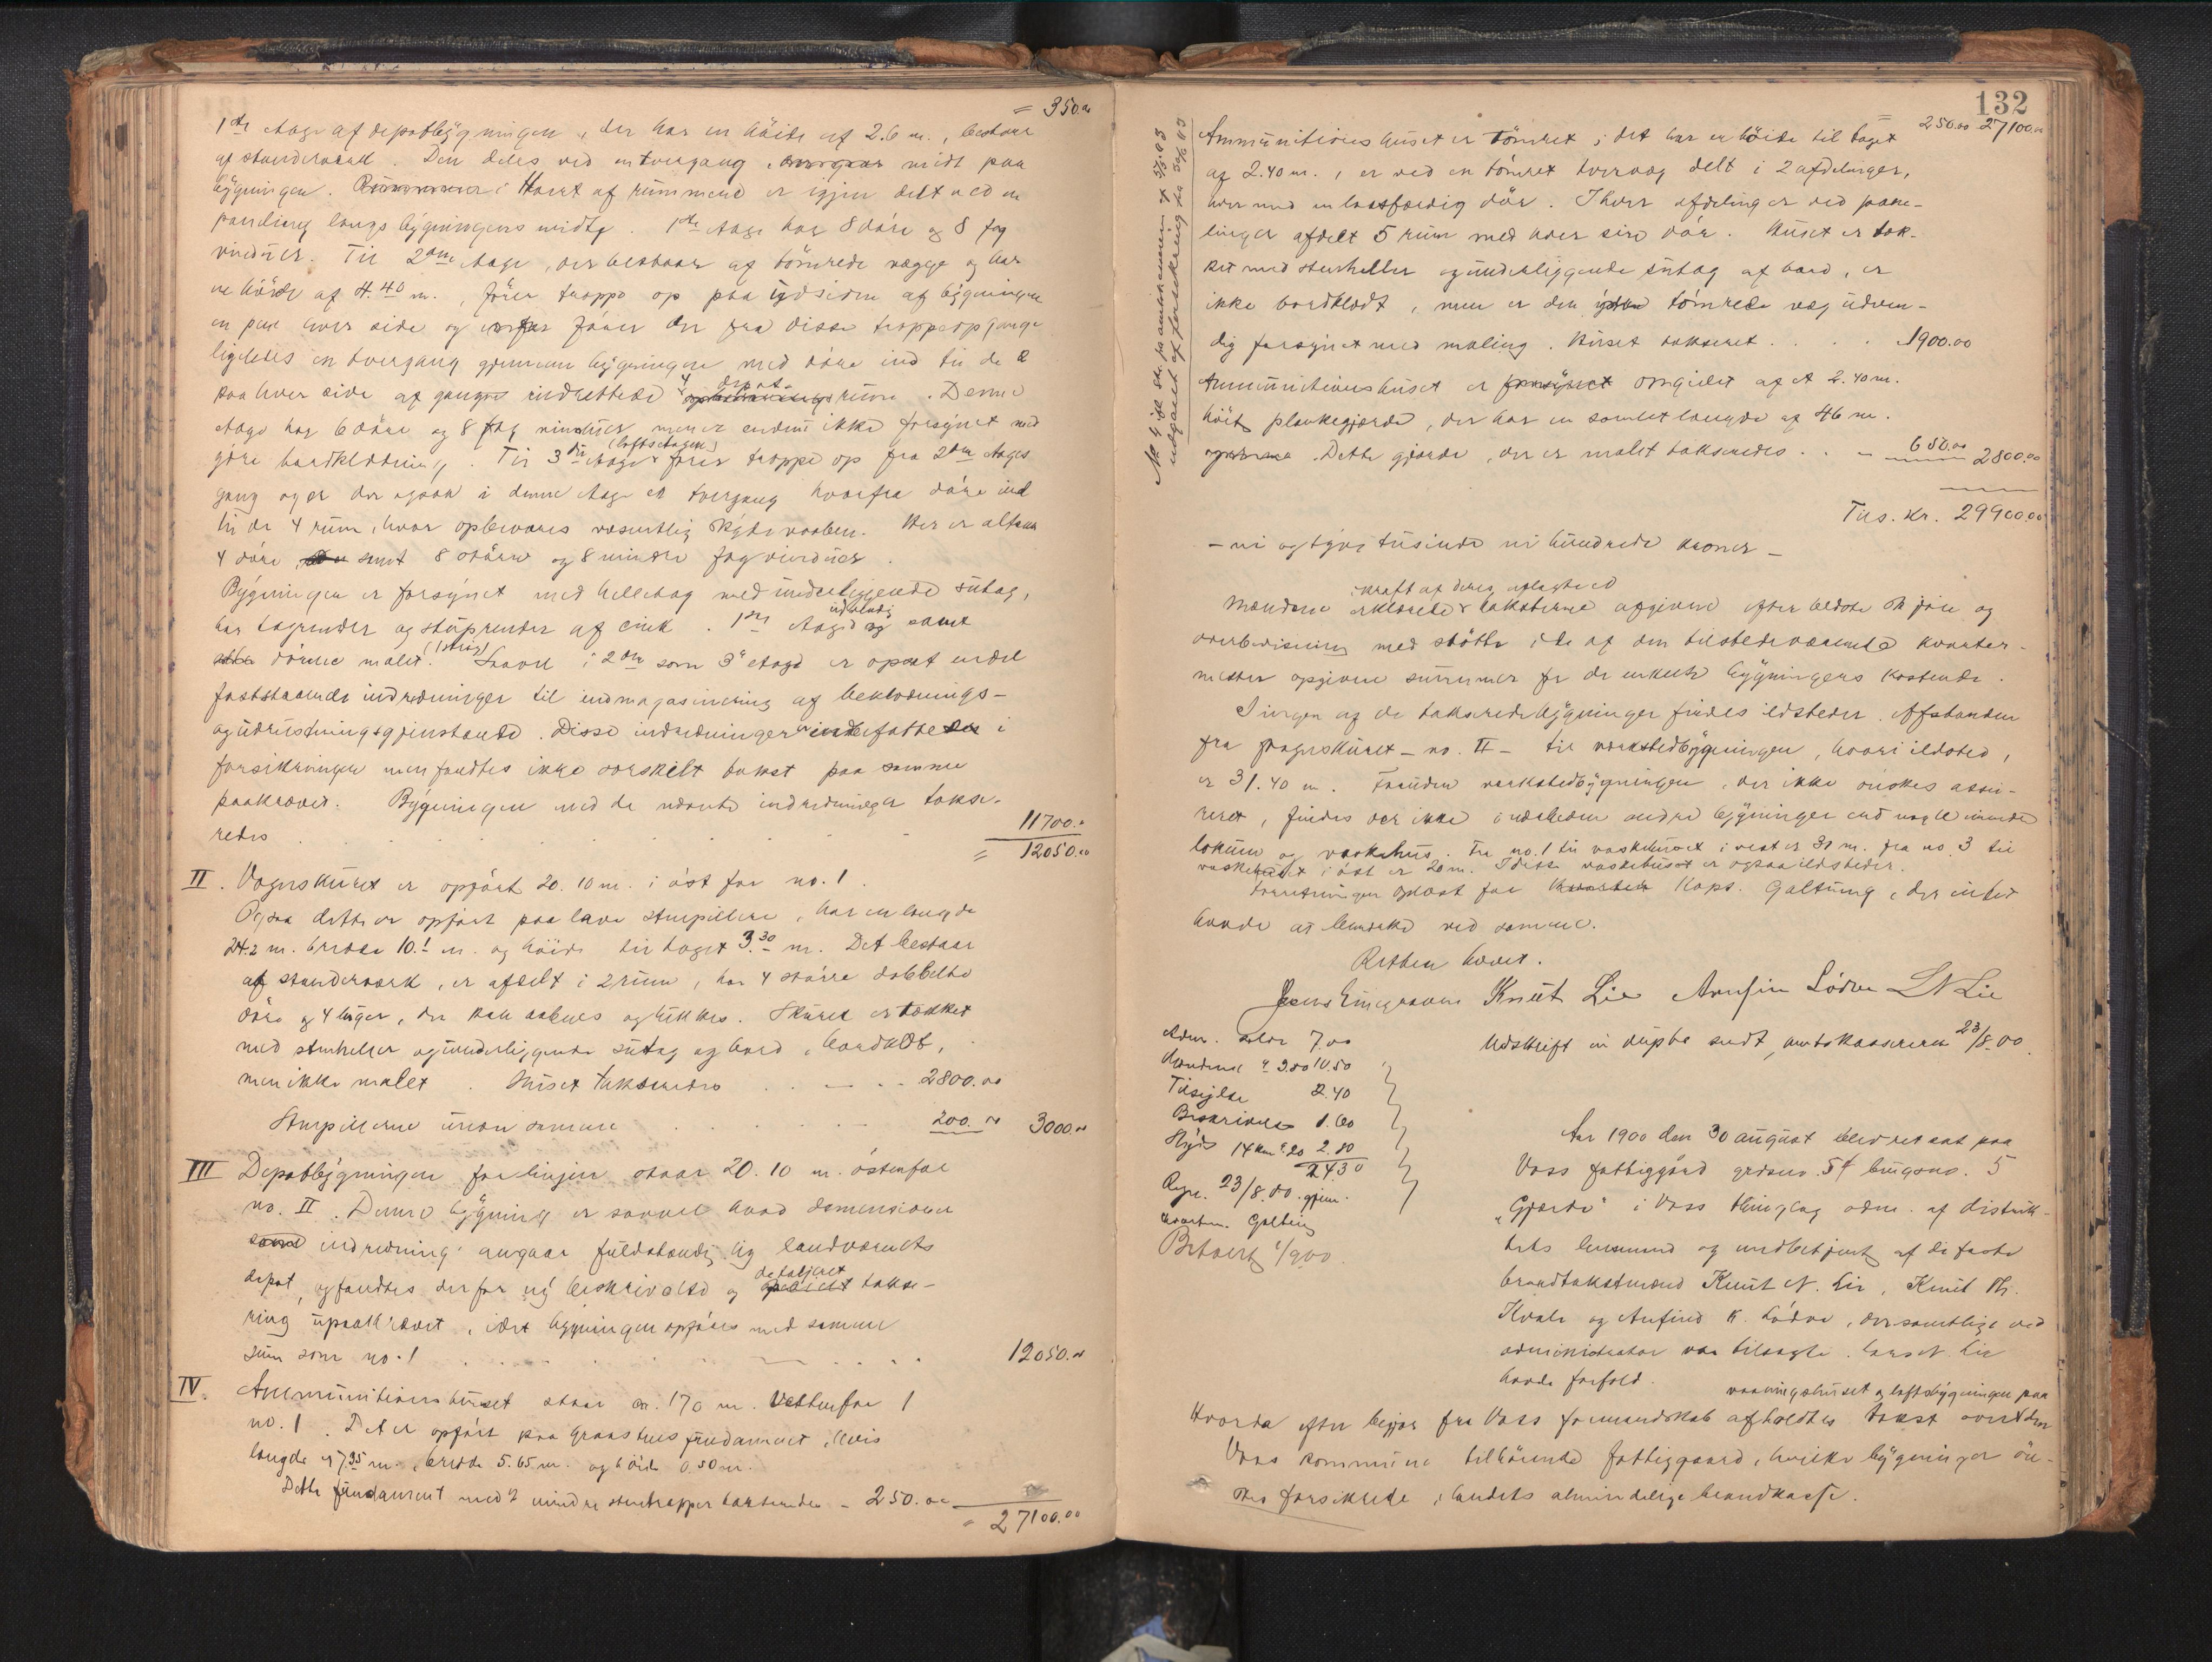 = 350.00
1ste etage af depotbygningen, der har en höide af 2.6 m., bestaar
af standerværk. Den deles ved en tvergang midt paa
bygningen. Hvert af rummene er igjen delt ved en
paneling langs bygningens midte. 1ste etage har 8 döre og 8 fag
vinduer. Til 2den etage, der bestaar af tömrede vægge og har
en höide af 4.40 m., förer trappe op paa ydsiden af bygningen
en paa hver side og förer der fra disse trappeopgange
ligeledes en tvergang gjennem bygningen med döre ind til de 2
paa hver side af gangen indrettede 4 depotrum. Denne
etage har 6 döre og 8 fag vinduer men er endnu ikke forsynet med
ydre bordklædning. Til 3die etage (loftsetagen) förer trappe op fra 2den etages
gang og er der ogsaa i denne etage en tvergang hvorfra döre ind
til de 4 rum, hvor opbevares væsentlig skydevaaben. Her er altsaa
4 döre, samt 8 större og 8 mindre fag vinduer.
Bygningen er forsynet med helletag med underliggende sutag,
har tagrender og stuprender af zink. 1ste etage udvendig samt
dörene malet (1 strög). Saavel i 2den som 3de etage er opsat endel
faststaaende indredninger til indmagasinering af beklædnings-
og udrustningsgjenstande. Disse indredninger indbefattes i
forsikringen men fandtes ikke særskilt takst paa samme
paakrævet. Bygningen med de nævnte indredninger takse-
redes . . . . . 11700.00
= 12050.00
II. Vognskuret er opfört 20.10 m. i öst for no. 1.
Ogsaa dette er opfört paa lave stenpillere, har en længde
24.2 m. bredde 10.1 m. og höide til taget 3.30 m. Det bestaar
af standerværk, er afdelt i 2 rum, har 4 större dobbelte
döre og 4 luger, der kan aabnes og lukkes. Skuret er tækket
med stenheller og underliggende sutag af bord, bordklædt,
men ikke malet. Huset takseredes . . . 2800.00
Stenpillerne under samme . . . 200.00 3000.00
III Depotbygningen for linjen staar 20.10 m. östenfor
no. II. Denne bygning er saavel hvad dimensioner
som indredning angaar fuldstændig lig landværnets
depot, og fandtes derfor ny beskrivelse og detaljeret takse-
ring upaakrævet, idet bygningen opföres med samme
sum som no. 1 . . . . . 12050.00
IV. Ammunitionshuset staar ca. 170 m. vestenfor
no. 1. Det er opfört paa graastens fundament, hvis
længde er 7.95 m., bredde 5.65 m. og höide 0.50 m.
Dette fundament med 2 mindre stentrapper takseredes - 250.00
= 27100.00
132
250.00 27100.00
Ammunitionshuset er tömret; det har en höide til taget
af 2.40 m., er ved en tömret tvervæg delt i 2 afdelinger,
hver med en laasfærdig dör. I hver afdeling er ved pane-
linger afdelt 5 rum med hver sin dör. Huset er tæk-
ket med stenheller og underliggende sutag af bord, er
ikke bordklædt, men er den tömrede væg udven-
dig forsynet med maling. Huset takseret . . . . 1900.00
Ammunitionshuset er omgivet af et 2.40 m.
höit plankegjærde, der har en samlet længde af 46 m.
Dette gjærde, der er malet takseredes . . - 650.00 2800.00
Tils. Kr. 29900.00
- ni og tyve tusinde ni hundrede kroner -
Mændene erklærede i kraft af deres aflagte ed taksterne afgivne efter bedste skjön og
overbevisning med stötte i de af den tilstedeværende kvarter-
mester opgivne summer for de enkelte bygningers kostende.
I ingen af de takserede bygninger findes ildsteder. Afstanden
fra vognskuret - no. II - til værkstedbygningen, hvori ildsted,
er 31.40 m. Foruden værkstedbygningen, der ikke önskes assu-
reret, findes der ikke i nærheden andre bygninger end nogle mindre
lokum og vaskehus. Fra no. 1 til vaskehuset i vest er 30 m. fra no 3 til
vaskehuset i öst er 20 m. I disse vaskehuset er ogsaa ildsteder.
Forretningen oplæst for Kapt. Galtung, der intet
havde at bemærke ved samme.
Retten hævet.
Knut Lie Arnfin Lödve L N Lie
Adm. selv 7.00
Mændene à 3.50 10.50
Tilsigelse 2.40
Beskrivelse 1.60
Skyds 14 km à 20 2.80
24.30
Regn. 23/8.00. gjen.
kvarterm. Galtung
Betalt 1/9 00
Udskrift in duplo sendt amtskassereren 23/8.00.
Aar 1900 den 30 august blev ret sat paa
Voss fattiggård gardsno. 54 bruksno. 5
„Gjærde" i Voss thinglag adm. af distrik-
tets lensmand og medbetjent af de faste
brandtakstmænd Knut N. Lie, Knut Th.
Kvale og Anfind K. Lödve, der samtlige ved
administrator var tilsagte. Lars N. Lie
havde forfald.
Hvorda efter begjær fra Voss formandskab afholdtes takst over vaaningshuset og loftsbygningen paa den
Voss kommune tilhörende fattiggaard, hvilke bygninger ön-
skes forsikrede i landets almindelige brandkasse.
No 4 ifl. skr. fra amtskassereren af 3/5.03
udgaaet af forsikring fra 30/6 03